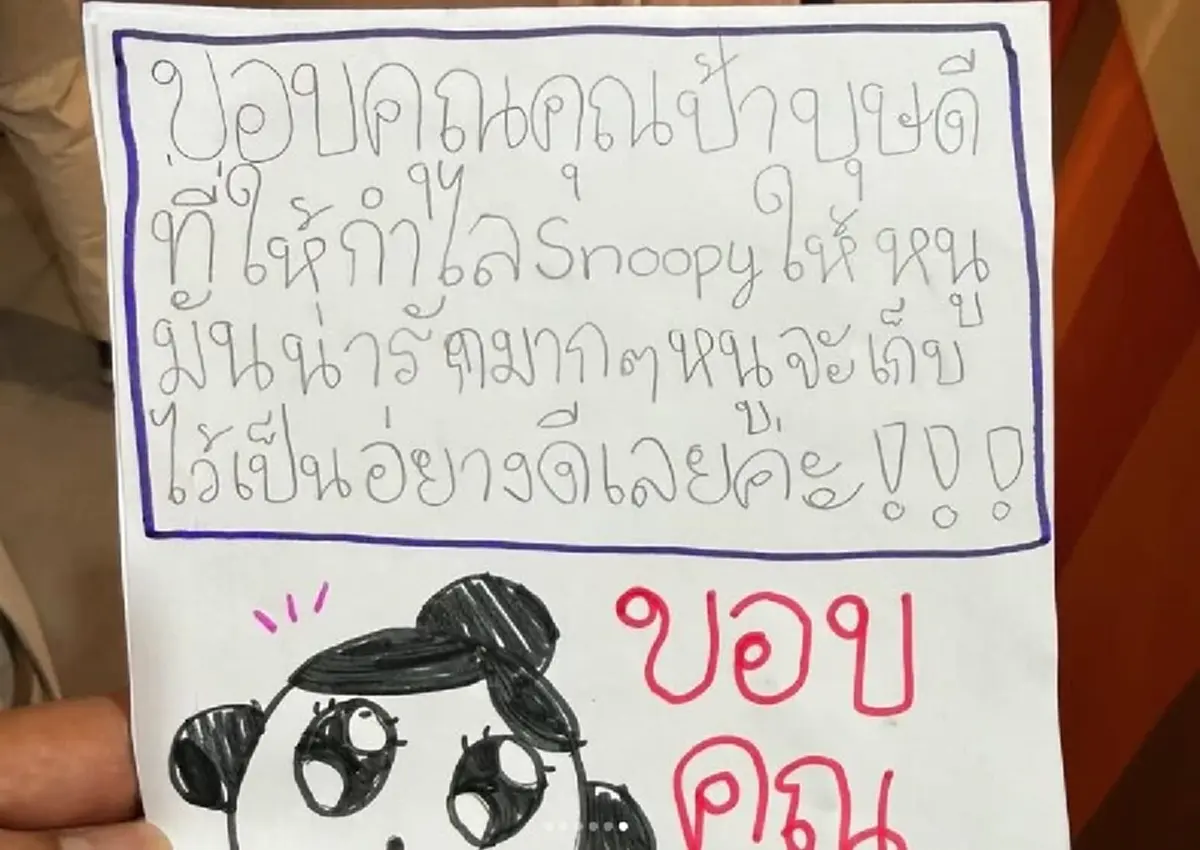 ขอบคุณคุณป้าบุษดี
ที่ให้กำไล Snoopy ให้หนู
มันน่ารักมากๆหนูจะเก็บ
ไว้เป็นอย่างดีเลยค่ะ !!!
ขอบ
คุณ